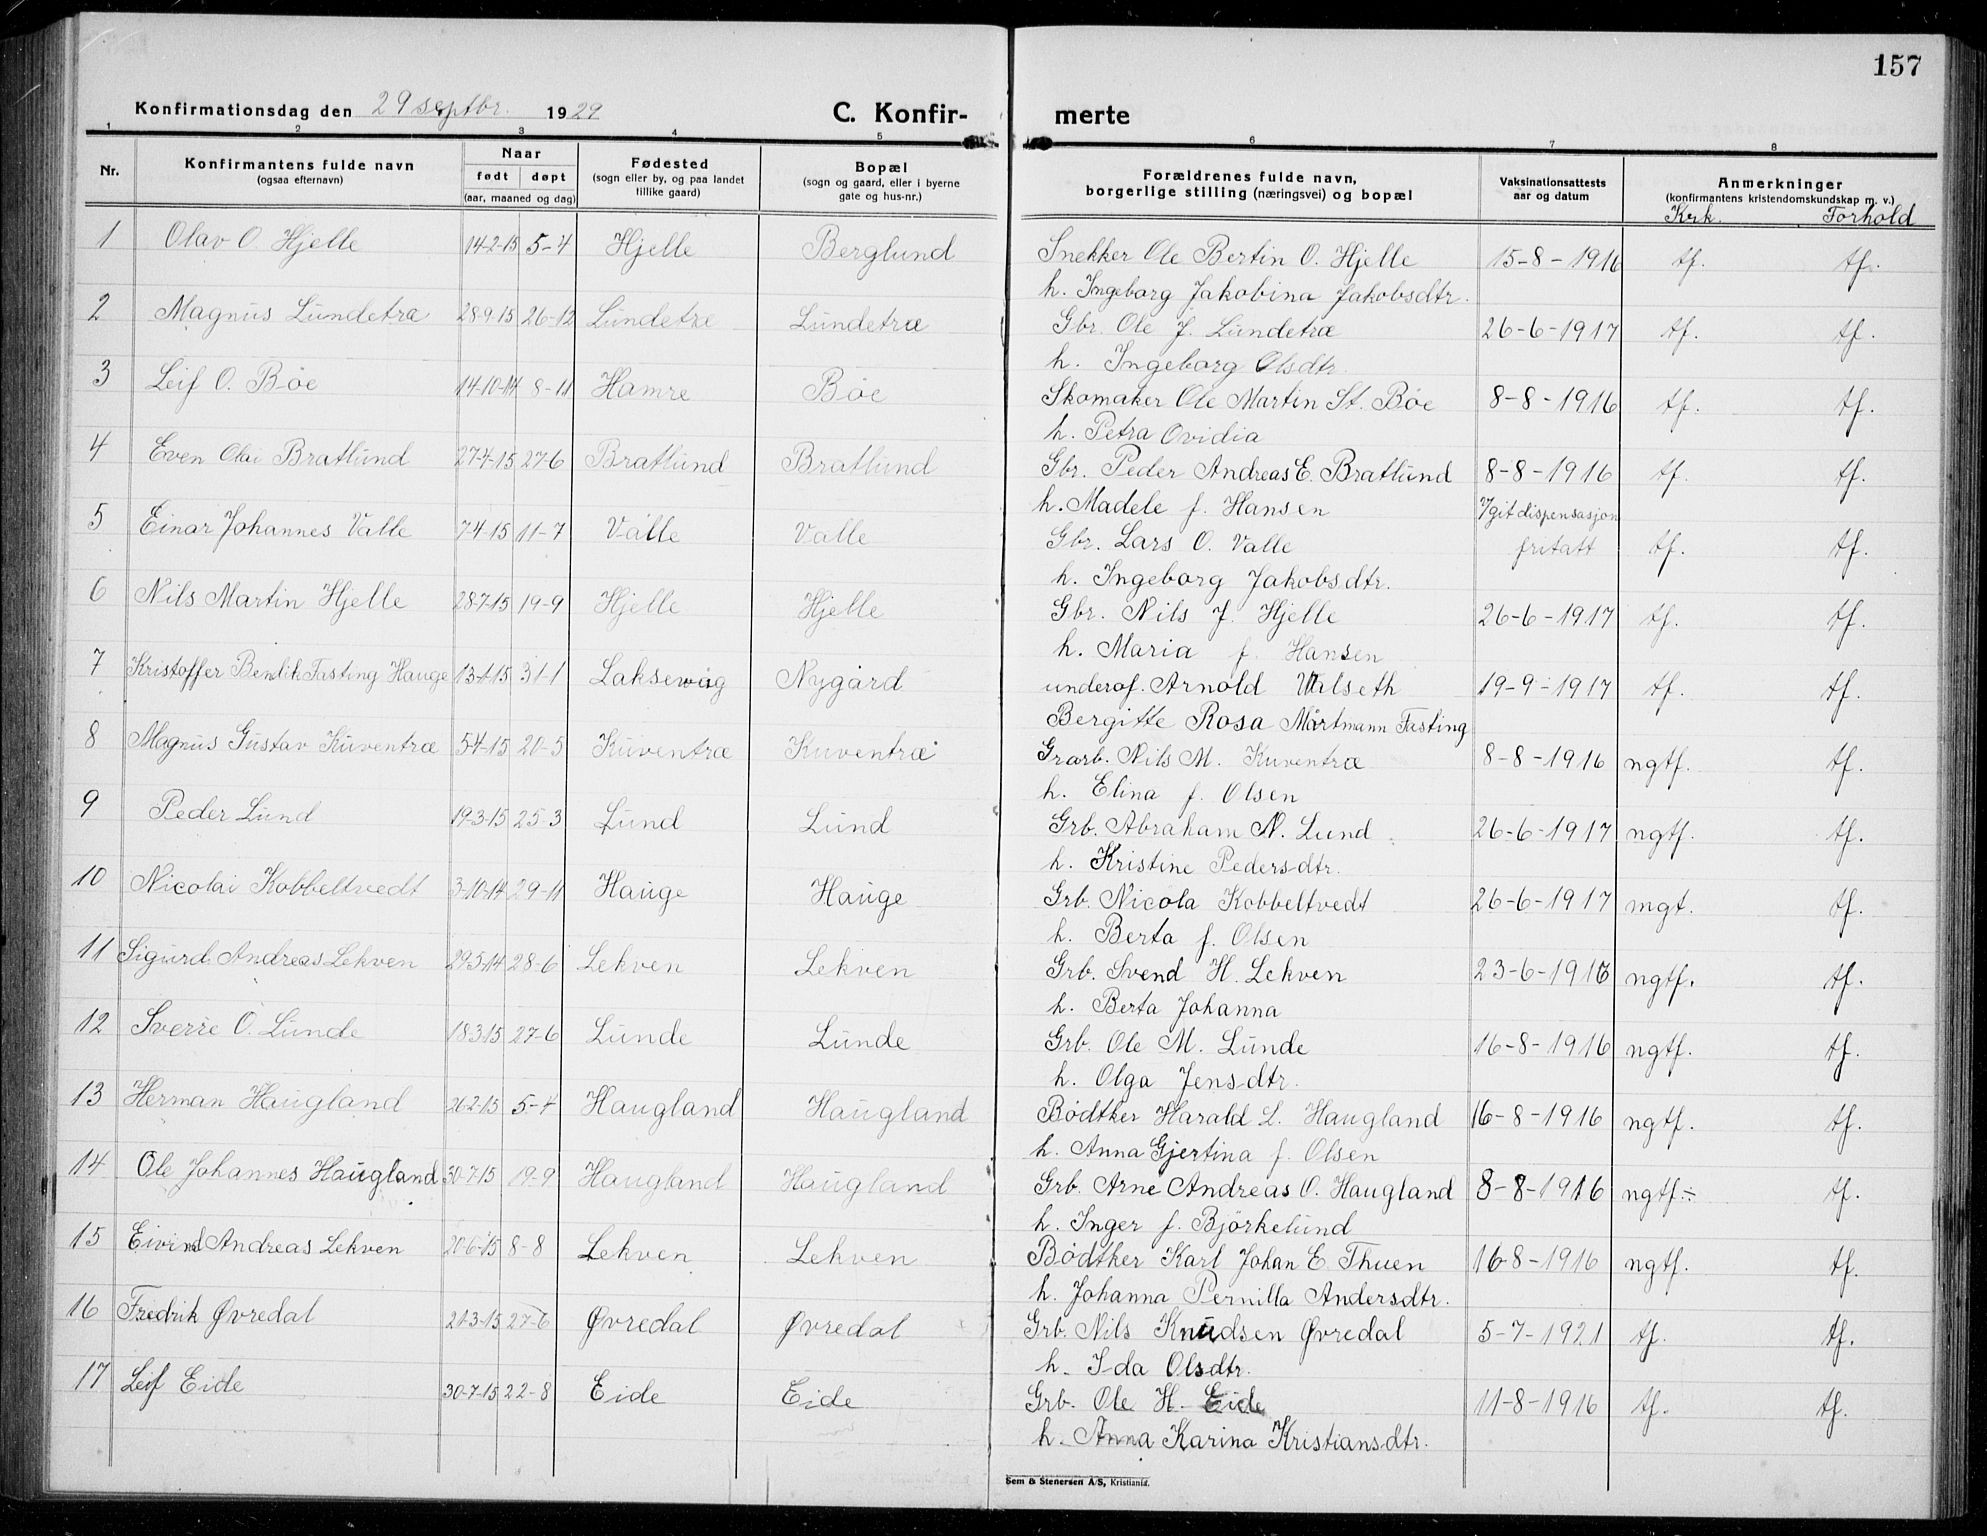 157
Konfirmationsdag den 29 septbr. 1929
C. Konfir-
merte
1 2 3 4 5 6 7 8
Nr.
Konfirmantens fulde navn
(ogsaa efternavn)
Naar
født døpt
(aar, maaned og dag)
Fødested
(sogn eller by, og paa landet
tillike gaard)
Bopæl
(sogn og gaard, eller i byerne
gate og hus-nr.)
Forældrenes fulde navn,
borgerlige stilling (næringsvei) og bopæl
Vaksinationsattests
aar og datum
Anmerkninger
(konfirmantens kristendomskundskap m. v.)
Krk. Forhold
1 Olav O. Hjelle 14-2-15 5-4 Hjelle Berglund Snekker Ole Bertin O. Hjelle 15-8-1916 tf. tf.
h. Ingeborg Jakobina Jakobsdtr.
2 Magnus Lundetræ 28-9-15 26-12 Lundetræ Lundetræ Gbr. Ole J. Lundetræ 26-6-1917 tf. tf.
h. Ingeborg Olsdtr.
3 Leif O. Bøe 14-10-14 8-11 Hamre Bøe Skomaker Ole Martin St. Bøe 8-8-1916 tf. tf.
h. Petra Ovidia
4 Even Olai Bratlund 27-4-15 27-6 Bratlund Bratlund Gbr. Peder Andreas E. Bratlund 8-8-1916 tf. tf.
h. Madele f. Hansen
5 Einar Johannes Valle 7-4-15 11-7 Valle Valle Gbr. Lars O. Valle V/git dispensasjon
fritatt tf. tf.
h. Ingeborg Jakobsdtr.
6 Nils Martin Hjelle 28-7-15 19-9 Hjelle Hjelle Gbr. Nils J. Hjelle 26-6-1917 tf. tf.
h. Maria f. Hansen
7 Kristoffer Bendik Fasting Hauge 13-1-15 31-1 Laksevåg Nygård underof. Arnold 19-9-1917 tf. tf.
Bergitte Rosa Mårtmann Fasting
8 Magnus Gustav Kuventræ 5-4-15 20-5 Kuventræ Kuventræ Grarb. Nils M. Kuventræ 8-8-1916 ngtf. tf.
h. Elina f. Olsen
9 Peder Lund 19-3-15 25-3 Lund Lund Grb. Abraham N. Lund 26-6-1917 ngtf. tf.
h. Kristine Pedersdtr.
10 Nicolai Kobbeltvedt 3-10-14 29-11 Hauge Hauge Grb. Nicola Kobbeltvedt 26-6-1917 mgt. tf.
h. Berta f. Olsen
11 Sigurd Andreas Lekven 29-5-14 28-6 Lekven Lekven Grb. Svend H. Lekven 23-6-1916 ngtf. tf.
h. Berta Johanna
12 Sverre O. Lunde 18-3-15 27-6 Lunde Lunde Grb. Ole M. Lunde 16-8-1916 ngtf. tf.
h. Olga Jensdtr.
13 Herman Haugland 26-2-15 5-4 Haugland Haugland Bødtker Harald L. Haugland 16-8-1916 ngtf. tf.
h. Anna Gjertina f. Olsen
14 Ole Johannes Haugland 30-7-15 19-9 Haugland Haugland Grb. Arne Andreas O. Haugland 8-8-1916 ngtf.÷ tf.
h. Inger f. Björkelund
15 Eivind Andreas Lekven 20-6-15 8-8 Lekven Lekven Bødtker Karl Johan E. Thuen 16-8-1916 ngtf. tf.
h. Johanna Pernilla Andersdtr.
16 Fredrik Øvredal 21-3-15 27-6 Øvredal Øvredal Grb. Nils Knudsen Øvredal 5-7-1921 tf. tf.
h. Ida Olsdtr.
17 Leif Eide 30-7-15 22-8 Eide Eide Grb. Ole H. Eide 11-8-1916 tf. tf.
h. Anna Karina Kristiansdtr.
Sem & Stenersen A/S, Kristiania.